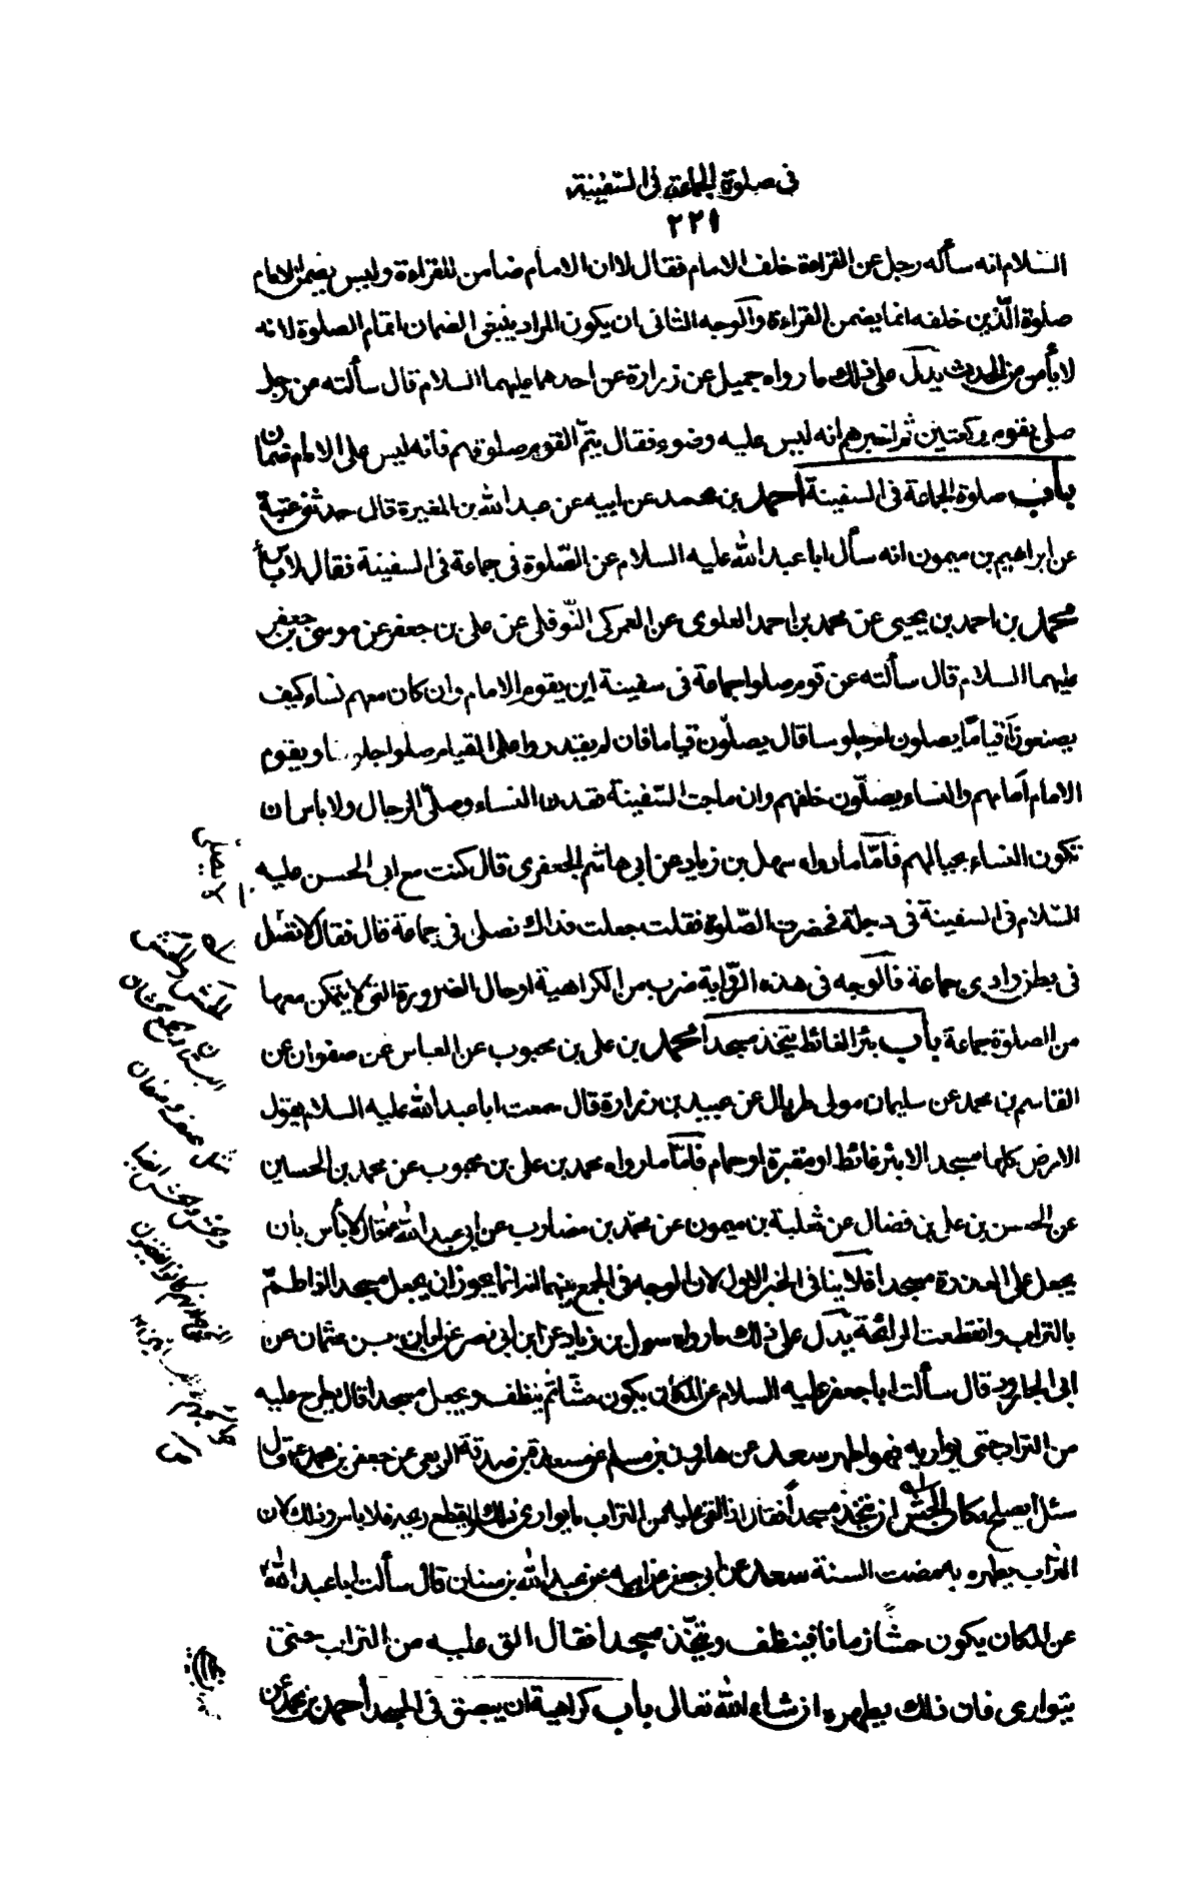 فى صلوة الجماعة فى السفينة
٢٢١
السلام انه سأله رجل عن القراءة خلف الامام فقال لا ان الامام ضامن للقراءة وليس يضمن الامام
صلوة الذين خلفه انما يضمن القراءة والوجه الثانى ان يكون المراد بنفى الضمان اتمام الصلوة لانه
لا يأمن من الحدث يدل على ذلك ما رواه جميل عن زرارة عن احدهما عليهما السلام قال سألته عن رجل
صلى بقوم ركعتين ثم اخبرهم انه ليس عليه وضوء فقال يتم القوم صلوتهم فانه ليس على الامام ضمان
باب صلوة الجماعة فى السفينة احمد بن محمد عن ابيه عن عبد الله بن المغيرة قال حدثنى عتيبة
عن ابراهيم بن ميمون انه سأل ابا عبد الله عليه السلام عن الصلوة فى جماعة فى السفينة فقال لا بأس
محمد بن احمد بن يحيى عن محمد بن احمد العلوى عن العمركى النوفلى عن على بن جعفر عن موسى بن جعفر
عليهما السلام قال سألته عن قوم صلوا جماعة فى سفينة اين يقوم الامام وان كان معهم نساء كيف
يصنعون أقياما يصلون ام جلوسا قال يصلون قياما فان لم يقدروا على القيام صلوا جلوسا ويقوم
الامام امامهم والنساء يصلون خلفهم وان ماجت السفينة قعدن النساء وصلى الرجال ولا باس ان
تكون النساء بحيالهم فأما ما رواه سهل بن زياد عن ابى هاشم الجعفرى قال كنت مع ابى الحسن عليه
السلام فى السفينة فى دجلة فحضرت الصلوة فقلت جعلت فداك نصلى فى جماعة قال فقال لا تصل
فى بطن وادى جماعة فالوجه فى هذه الرواية ضرب من الكراهية او حال الضرورة التى لا يتمكن معها
من الصلوة جماعة باب بئر الغائط يتخذ مسجدا محمد بن على بن محبوب عن العباس عن صفوان عن
القاسم بن محمد عن سليمان مولى طربال عن عبيد بن زرارة قال سمعت ابا عبد الله عليه السلام يقول
الارض كلها مسجد الا بئر غائط او مقبرة او حمام فأما ما رواه محمد بن على بن محبوب عن محمد بن الحسين
عن الحسن بن على بن فضال عن ثعلبة بن ميمون عن محمد بن مضارب عن ابى عبد الله قال لا بأس بان
يجعل على العذرة مسجدا فلا ينافى الخبر الاول لان الوجه فى الجمع بينهما انه انما يجوز ان يجعل مسجدا اذا طم
بالتراب وانقطعت الرائحة يدل على ذلك ما رواه سهل بن زياد عن ابن ابى نصر عن ابان بن عثمان عن
ابى الجارود قال سألت ابا جعفر عليه السلام عن المكان يكون حشا ثم ينظف ويجعل مسجدا قال يطرح عليه
من التراب حتى يواريه فهو اطهر سعد عن هارون بن مسلم عن مسعدة بن صدقة الربعى عن جعفر بن محمد قال
سئل ايصلح مكان الحش ان يتخذ مسجدا فقال اذا القى عليه من التراب ما يوارى ذلك ويقطع ريحه فلا باس وذلك لان
التراب يطهره به مضت السنة سعد عن ابى جعفر عن ابيه عن عبد الله بن سنان قال سألت ابا عبد الله
عن المكان يكون حشا زمانا فينظف ويتخذ مسجدا فقال الق عليه من التراب حتى
يتوارى فان ذلك يطهره ان شاء الله تعالى باب كراهية ان يبصق فى المسجد احمد بن محمد عن